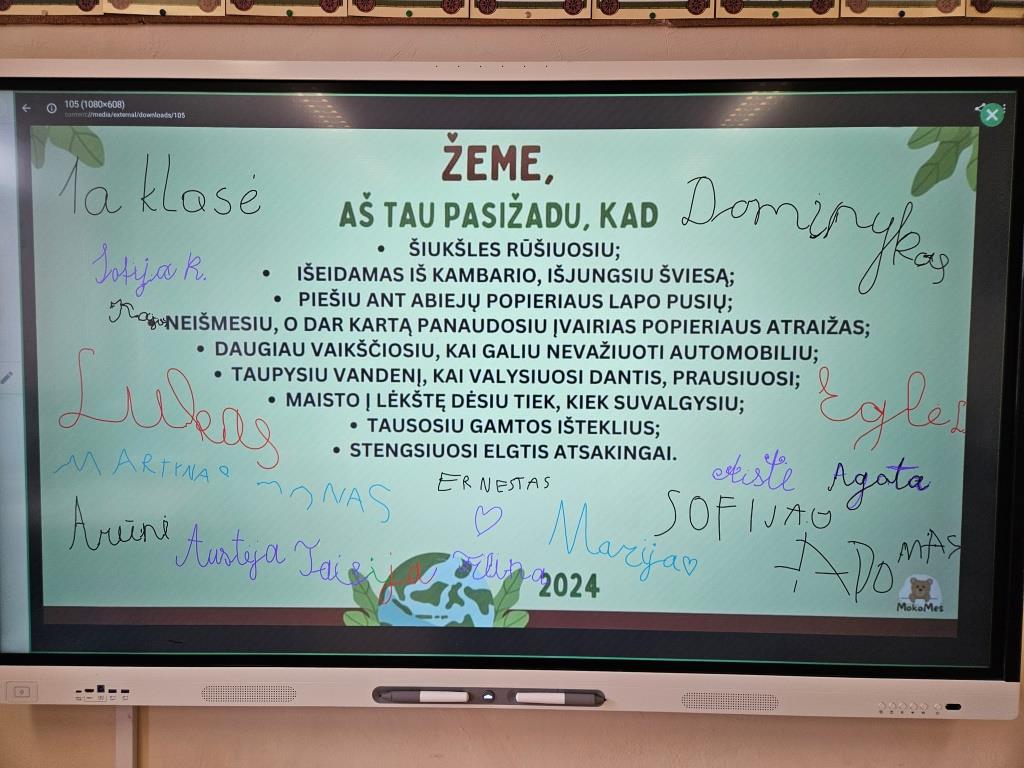 105 (1080×608)
content://media/external/downloads/105
ŽEME,
1a klasė
Dominykas
AŠ TAU PASIŽADU, KAD
• ŠIUKŠLES RŪŠIUOSIU;
Sofija R.
• IŠEIDAMAS IŠ KAMBARIO, IŠJUNGSIU ŠVIESĄ;
• PIEŠIU ANT ABIEJŲ POPIERIAUS LAPO PUSIŲ;
NEIŠMESIU, O DAR KARTĄ PANAUDOSIU ĮVAIRIAS POPIERIAUS ATRAIŽAS;
• DAUGIAU VAIKŠČIOSIU, KAI GALIU NEVAŽIUOTI AUTOMOBILIU;
• TAUPYSIU VANDENĮ, KAI VALYSIUOSI DANTIS, PRAUSIUOSI;
Lukas
Eglė
• MAISTO Į LĖKŠTĘ DĖSIU TIEK, KIEK SUVALGYSIU;
• TAUSOSIU GAMTOS IŠTEKLIUS;
• STENGSIUOSI ELGTIS ATSAKINGAI.
MARTYNAS
Aistė
Agata
ERNESTAS
SOFIJA U
Arūnė
Austėja
Taisija
Marija
ADOMAS
2024
MokoMes